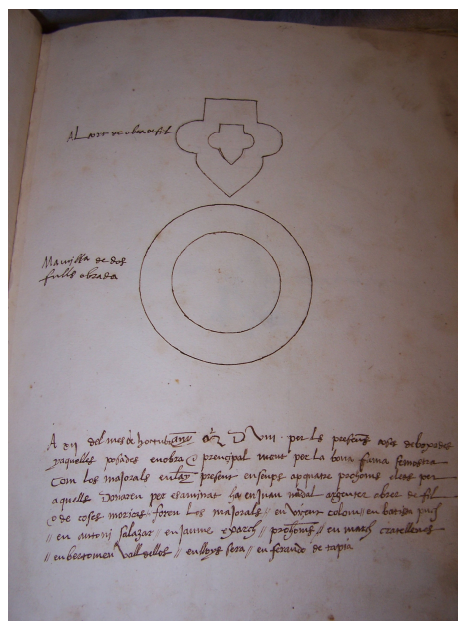 Manilla de dos
fulls obrada
A xii del mes de hoctubre any M D Viii per les presents coses deboxades
y aquelles posades en obra e prencipal ment per la bona fama femostra
Com los majorals en lany present ensemps ap quatre prohomens elets per
aquells Donaren per examinat ha en Juan nadal argenter obrer de fil
e de coses moriscas foren los majorals en vicent colom en batista puch
// en antoni salazar // en Jaume // prohomens // en march
// en bertomeu Vallselles // en lloys sera // en ferando de tapia